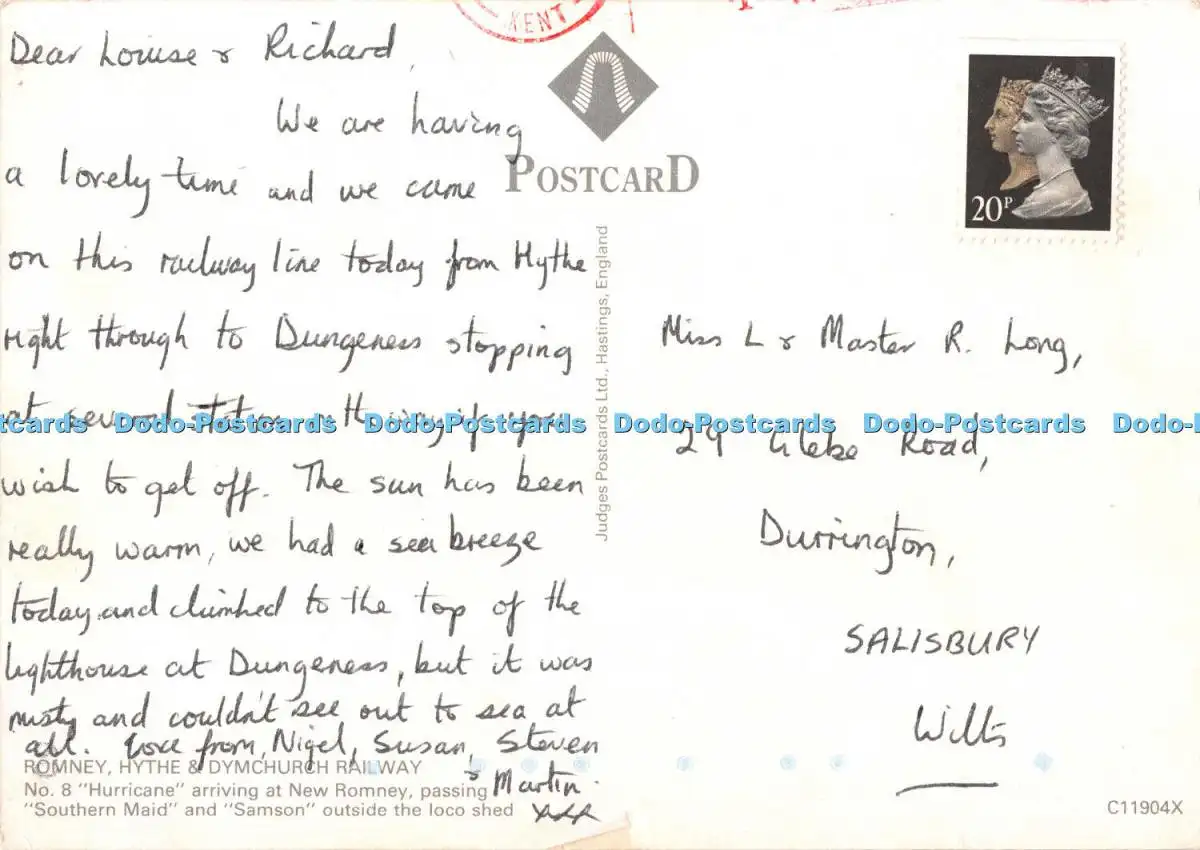 KENT
Dear Louise & Richard,
We are having
a lovely time and we came
on this railway line today from Hythe
right through to Dungeness stopping
at several on the way if you
wish to get off. The sun has been
really warm, we had a sea breeze
today and climbed to the top of the
lighthouse at Dungeness, but it was
misty and couldn't see out to sea at
all. Love from, Nigel, Susan, Steven
& Martin.
xxx
POSTCARD
Judges Postcards Ltd., Hastings, England
20P
Miss L & Master R. Long,
29 Glebe Road,
Durrington,
SALISBURY
Wilts
ROMNEY, HYTHE & DYMCHURCH RAILWAY
No. 8 "Hurricane" arriving at New Romney, passing
"Southern Maid" and "Samson" outside the loco shed
C11904X
stcards Dodo-Postcards Dodo-Postcards Dodo-Postcards Dodo-Postcards Dodo-P